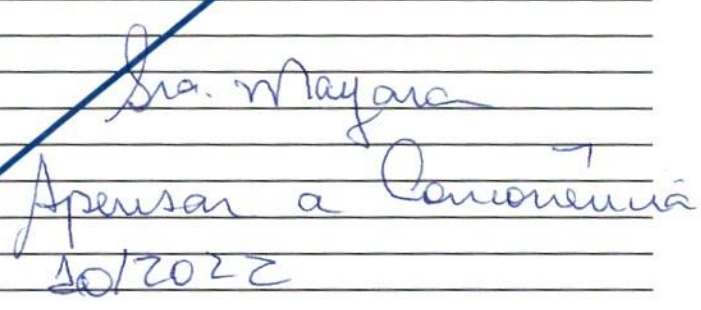 Sra. Mayara
Apensar a Concorrência
10/2022